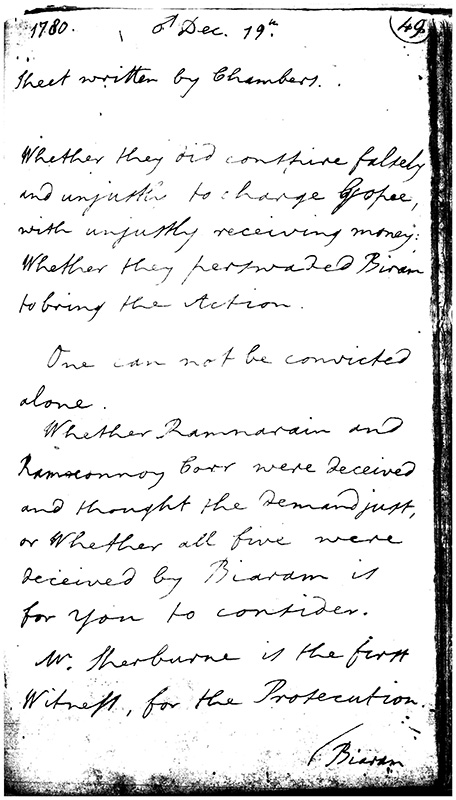 1780. Dec. 19th. 49
Sheet written by Chambers.
Whether they did conspire falsely
and unjustly to charge Gopee,
with unjustly receiving money:
Whether they perswaded Biram
to bring the Action.
One can not be convicted
alone.
Whether Ramnarain and
Ramconnoy Corr were deceived
and thought the demand just,
or Whether all five were
deceived by Biaram is
for You to consider.
Mr. Sherburne is the first
Witness, for the Prosecution.
Biaram